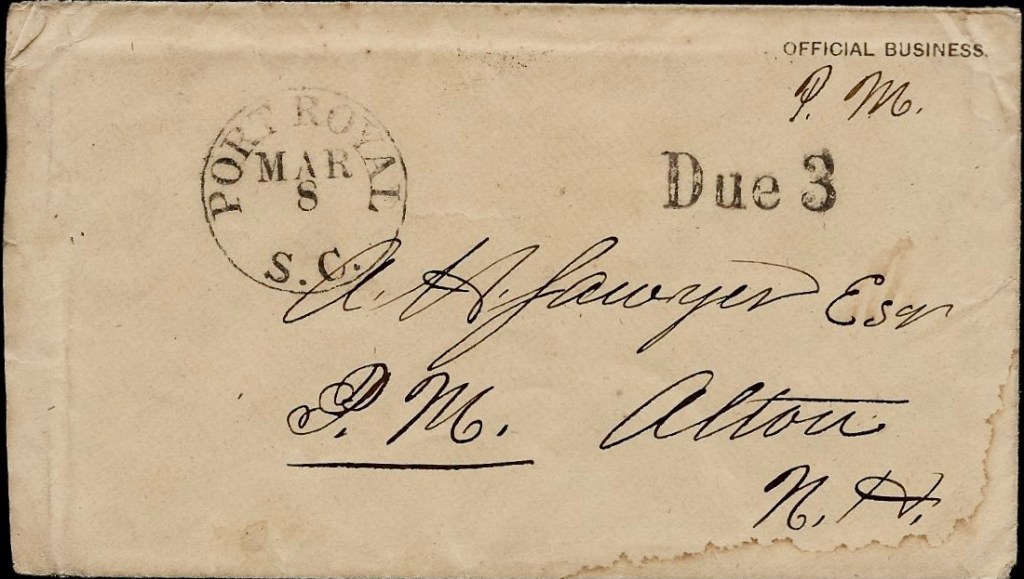 OFFICIAL BUSINESS.
P. M.
PORT ROYAL
MAR
8
S. C.
Due 3
A. H. Sawyer Esqr
P. M. Alton
N. H.